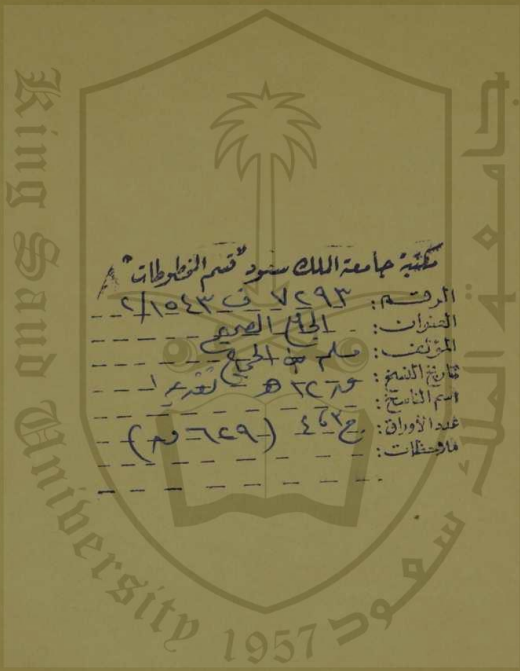 King Saud University 1957
جامعة الملك سعود
مكتبة جامعة الملك سعود "قسم المخطوطات"
الرقم: ٧٢٩٣ ف ١٥٤٣/٢
العنوان: الجامع الصحيح
المؤلف: مسلم بن الحجاج
تاريخ النسخ:
اسم الناسخ:
عدد الأوراق:
ملاحظات: